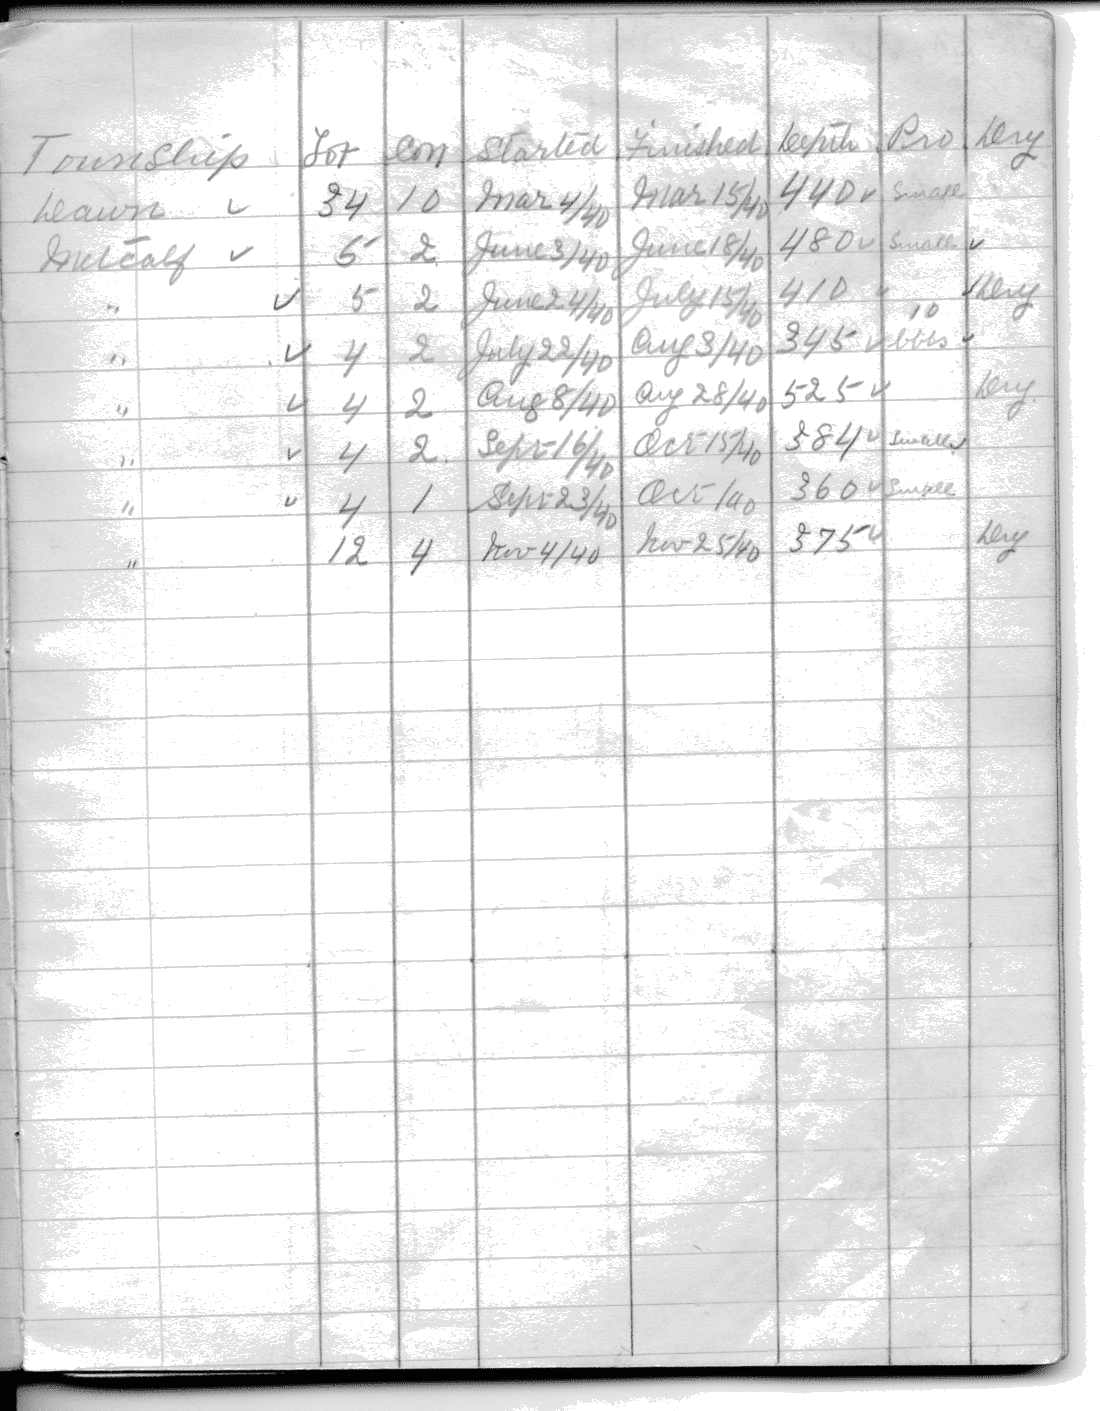 Township Lot Con Started Finished Depth Pro Dry
Dawn ✓ 34 10 Mar 4/40 Mar 15/40 440 ✓ Small
Metcalf ✓ 5 2 June 3/40 June 18/40 480 ✓ Small ✓
" ✓ 5 2 June 24/40 July 15/40 410 ✓ ✓ Dry
" ✓ 4 2 July 22/40 Aug 3/40 345 ✓ 10 bbls ✓
" ✓ 4 2 Aug 8/40 Aug 28/40 525 ✓ Dry.
" ✓ 4 2. Sept 16/40 Oct 15/40 384 ✓ Small ✓
" ✓ 4 1 Sept 23/40 Oct 1/40 360 ✓ Small
" 12 4 Nov 4/40 Nov 25/40 375 ✓ Dry